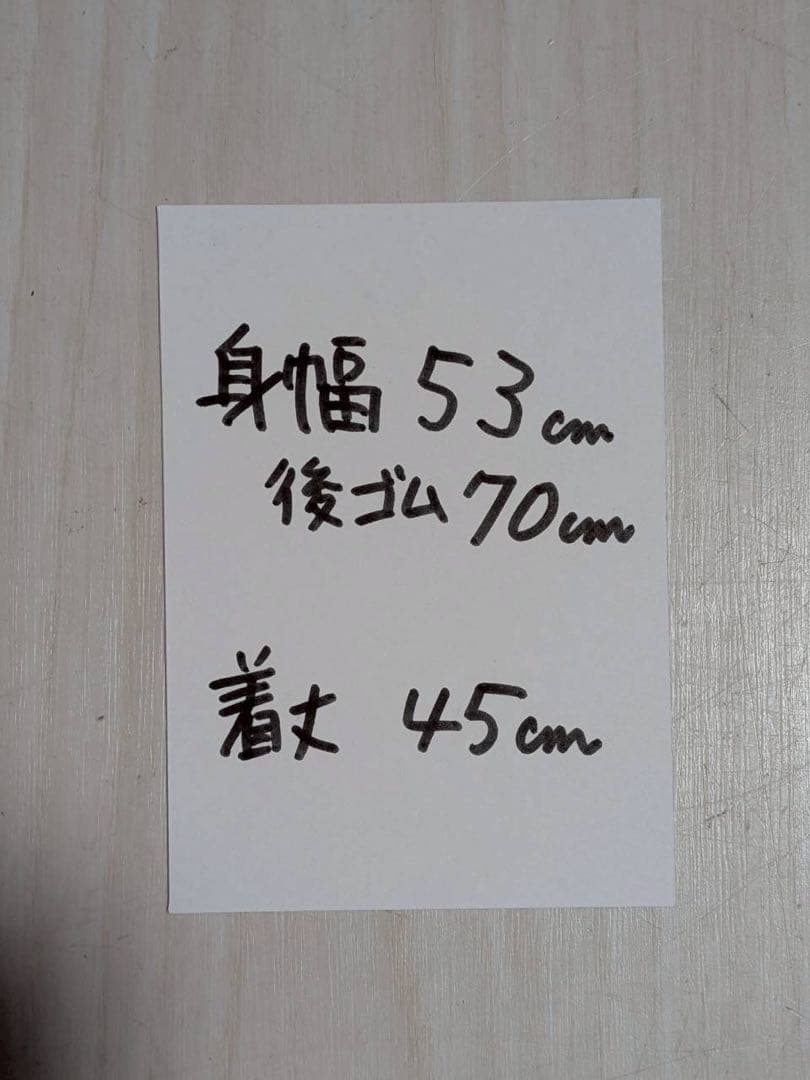 身幅 53cm
後ゴム 70cm
着丈 45cm